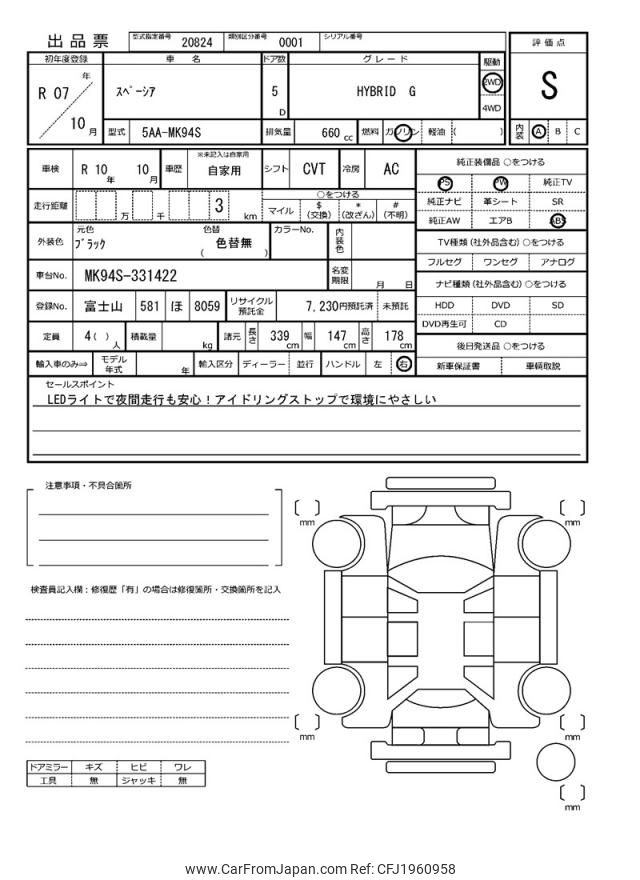 出品票 型式指定番号 20824 類別区分番号 0001 シリアル番号
評価点
S
内装 A B C
初年度登録 車名 ドア数 グレード 駆動
R 07 年 10 月 スペーシア 5 D HYBRID G 2WD 4WD
型式 5AA-MK94S 排気量 660 cc 燃料 ガソリン 軽油 ( )
車検 R 10 年 10 月 車歴 ※未記入は自家用 自家用 シフト CVT 冷房 AC
走行距離 万 千 3 km ○をつける
マイル $(交換) *(改ざん) #(不明)
外装色 元色 ブラック 色替 ( 色替無 ) カラーNo. 内装色
車台No. MK94S-331422 名変期限 月 日
登録No. 富士山 581 ほ 8059 リサイクル預託金 7,230円預託済 未預託
定員 4( )人 積載量 kg 諸元 長さ 339 cm 幅 147 cm 高さ 178 cm
輸入車のみ⇒ モデル年式 年 輸入区分 ディーラー 並行 ハンドル 左 右
純正装備品 ○をつける
PS PW 純正TV
純正ナビ 革シート SR
純正AW エアB ABS
TV種類(社外品含む) ○をつける
フルセグ ワンセグ アナログ
ナビ種類(社外品含む) ○をつける
HDD DVD SD
DVD再生可 CD
後日発送品 ○をつける
新車保証書 車輌取説
セールスポイント
LEDライトで夜間走行も安心！アイドリングストップで環境にやさしい
注意事項・不具合箇所
検査員記入欄：修復歴「有」の場合は修復箇所・交換箇所を記入
ドアミラー キズ ヒビ ワレ
工具 無 ジャッキ 無
[ ] mm
[ ] mm
[ ] mm
[ ] mm
[ ] mm
www.CarFromJapan.com Ref: CFJ1960958